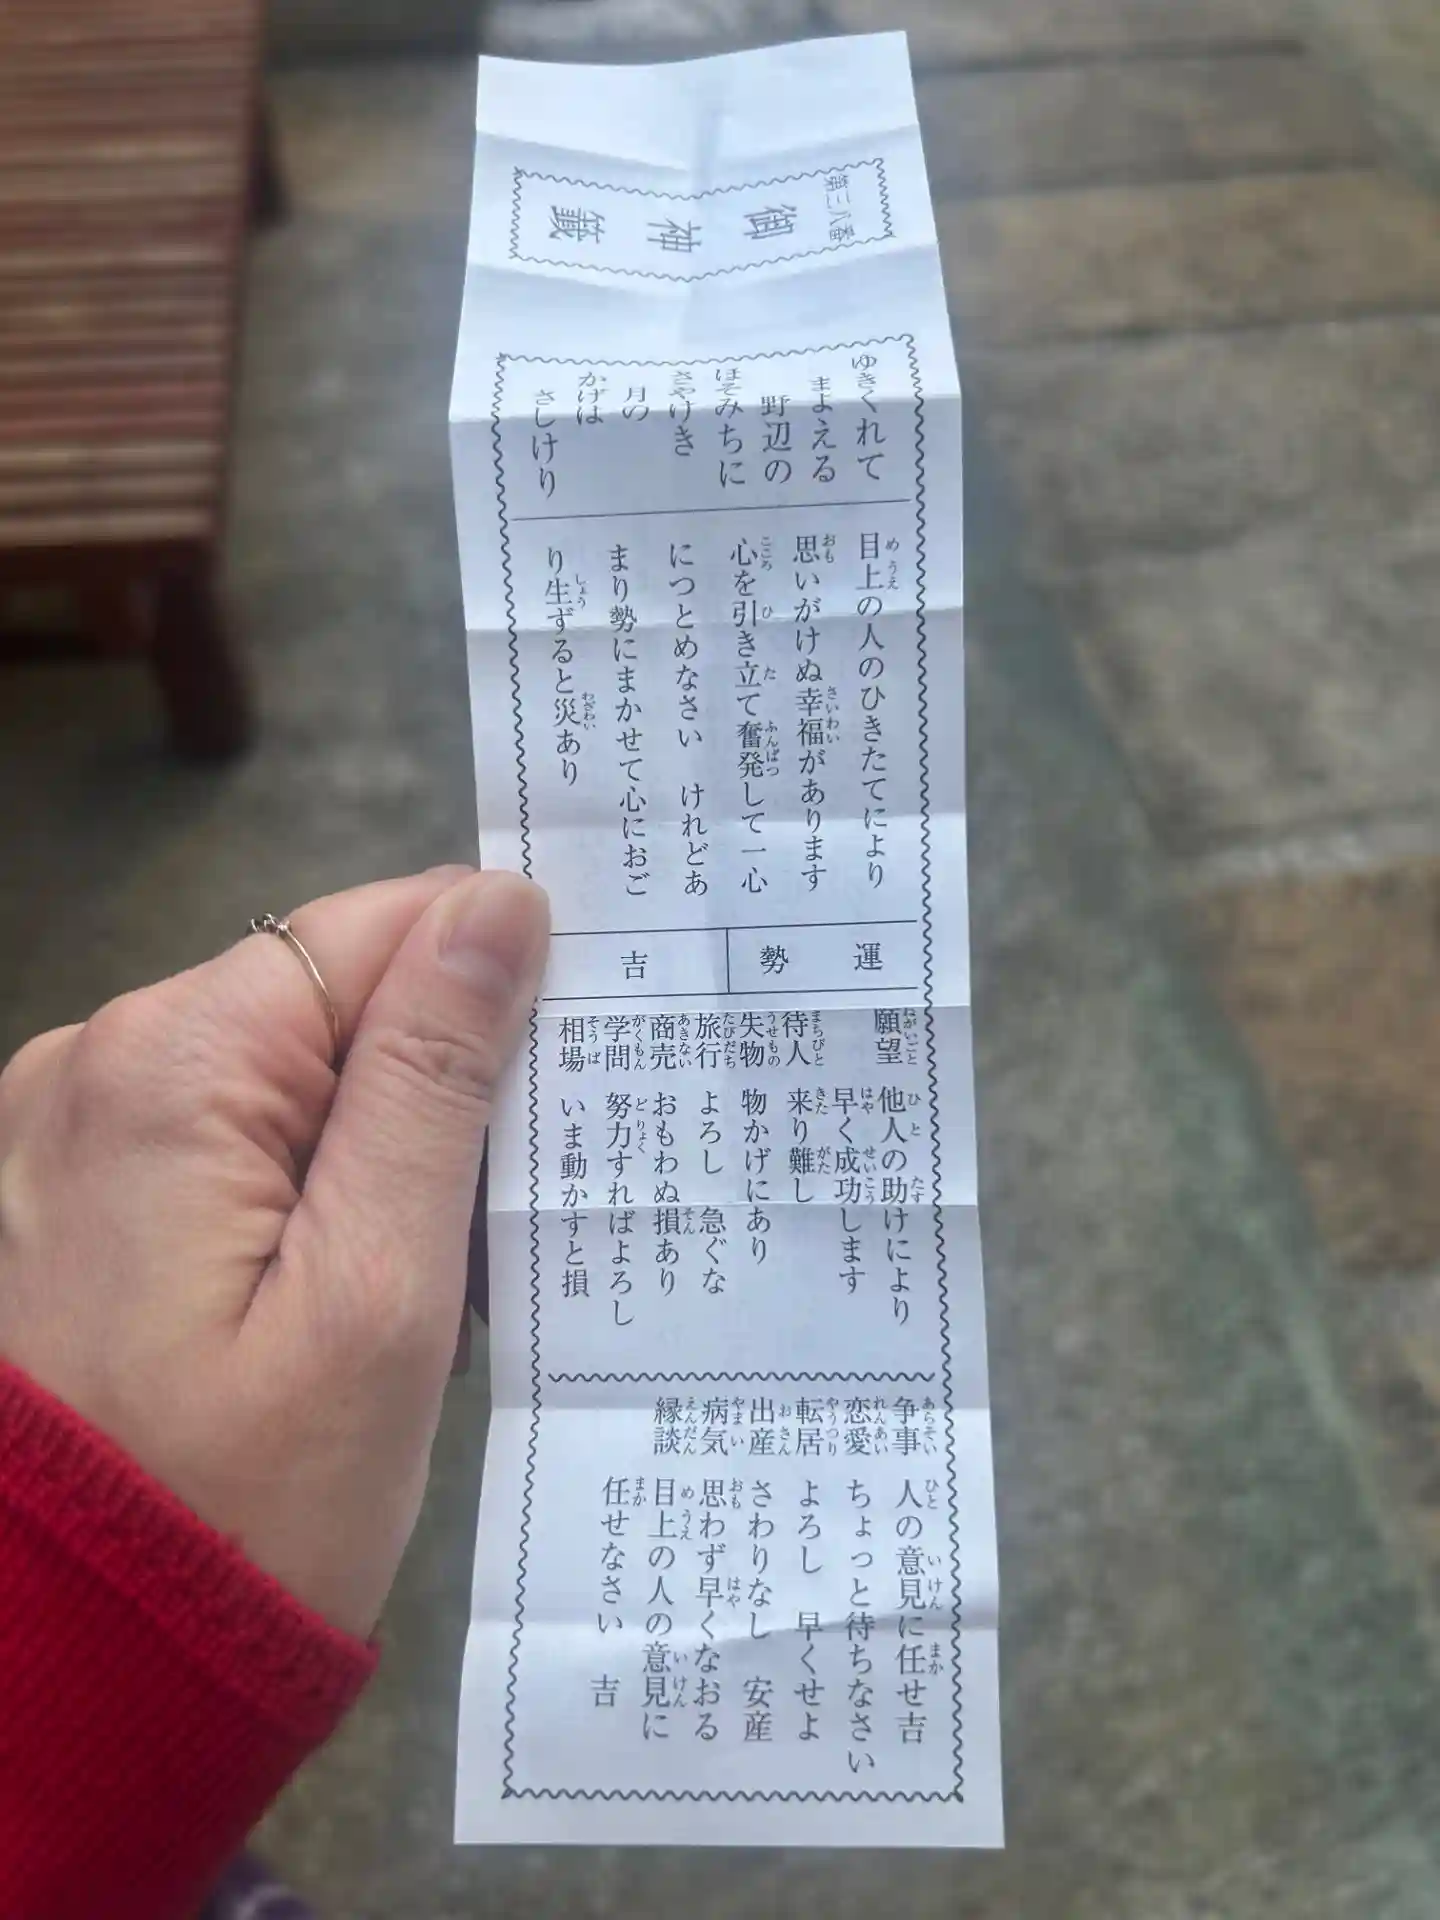 第三八番
御神籤
ゆきくれて
まよえる
野辺の
ほそみちに
さやけき
月の
かげは
さしけり
目上の人のひきたてにより
思いがけぬ幸福があります
心を引き立て奮発して一心
につとめなさい けれどあ
まり勢にまかせて心におご
り生ずると災あり
運勢 吉
願望 他人の助けにより
早く成功します
待人 来り難し
失物 物かげにあり
旅行 よろし 急ぐな
商売 おもわぬ損あり
学問 努力すればよろし
相場 いま動かすと損
争事 人の意見に任せ吉
恋愛 ちょっと待ちなさい
転居 よろし 早くせよ
出産 さわりなし 安産
病気 思わず早くなおる
縁談 目上の人の意見に
任せなさい 吉